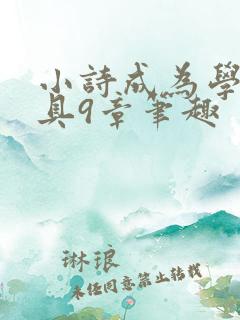 小詩成為學
具9章筆趣
琳琅
未任同意禁止转载